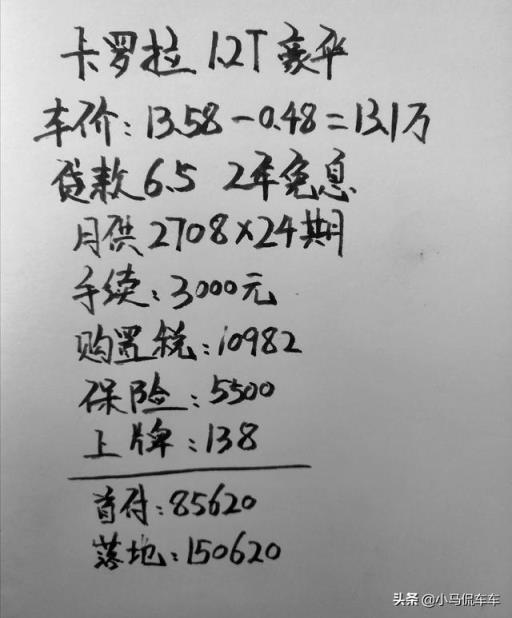 卡罗拉 1.2T 豪华
车价:13.58-0.48=13.1万
贷款 6.5 2年免息
月供 2708×24期
手续:3000元
购置税:10982
保险:5500
上牌:138
首付:85620
落地:150620
头条 @小马侃车车